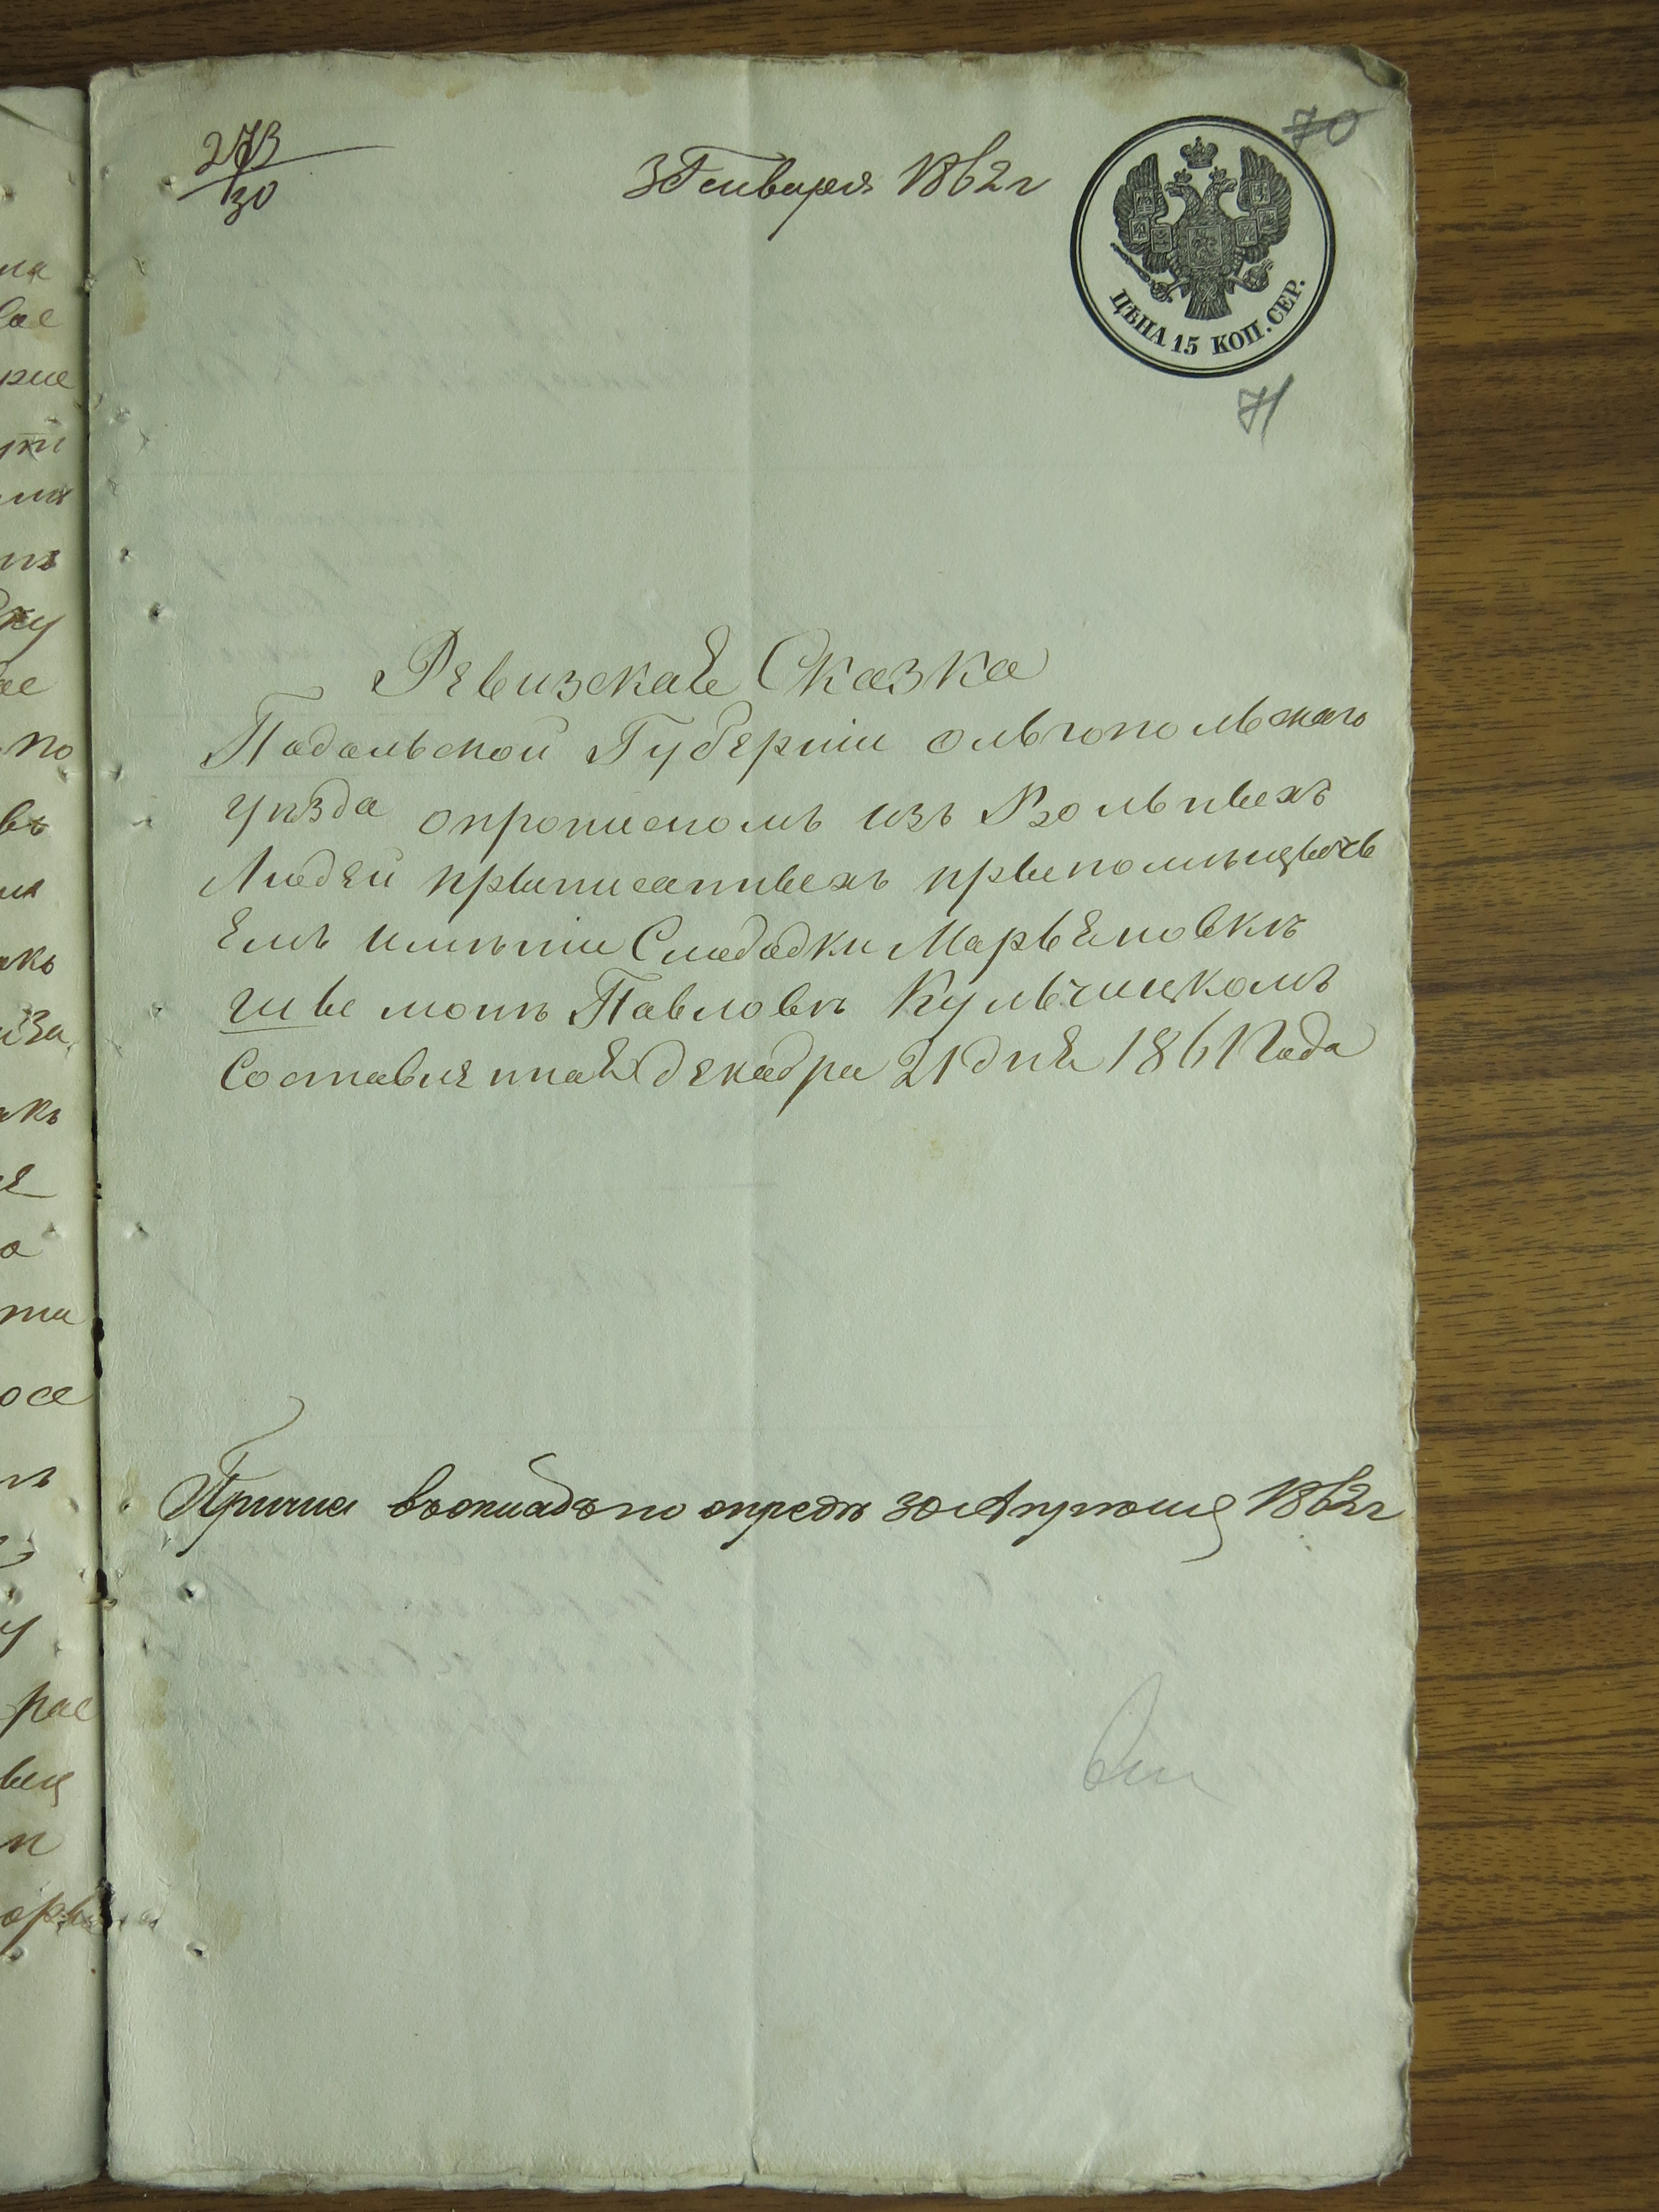 273
30
3 Генваря 1862 г
70
ЦѢНА 15 КОП. СЕР.
71
Ревизская Сказка
Падольской Губернии ольгопольскаго
уѣзда опрописномъ изъ Вольныхъ
Людей прыписанныхъ прыпомѣщычь
емъ имѣнии Слободки Марьяновкѣ
шы монѣ Павловѣ Кульчицкомъ
Составленная декабра 21 дня 1861 Года
Приня въокладъ по опредѣ 30 Апрѣля 1862 г